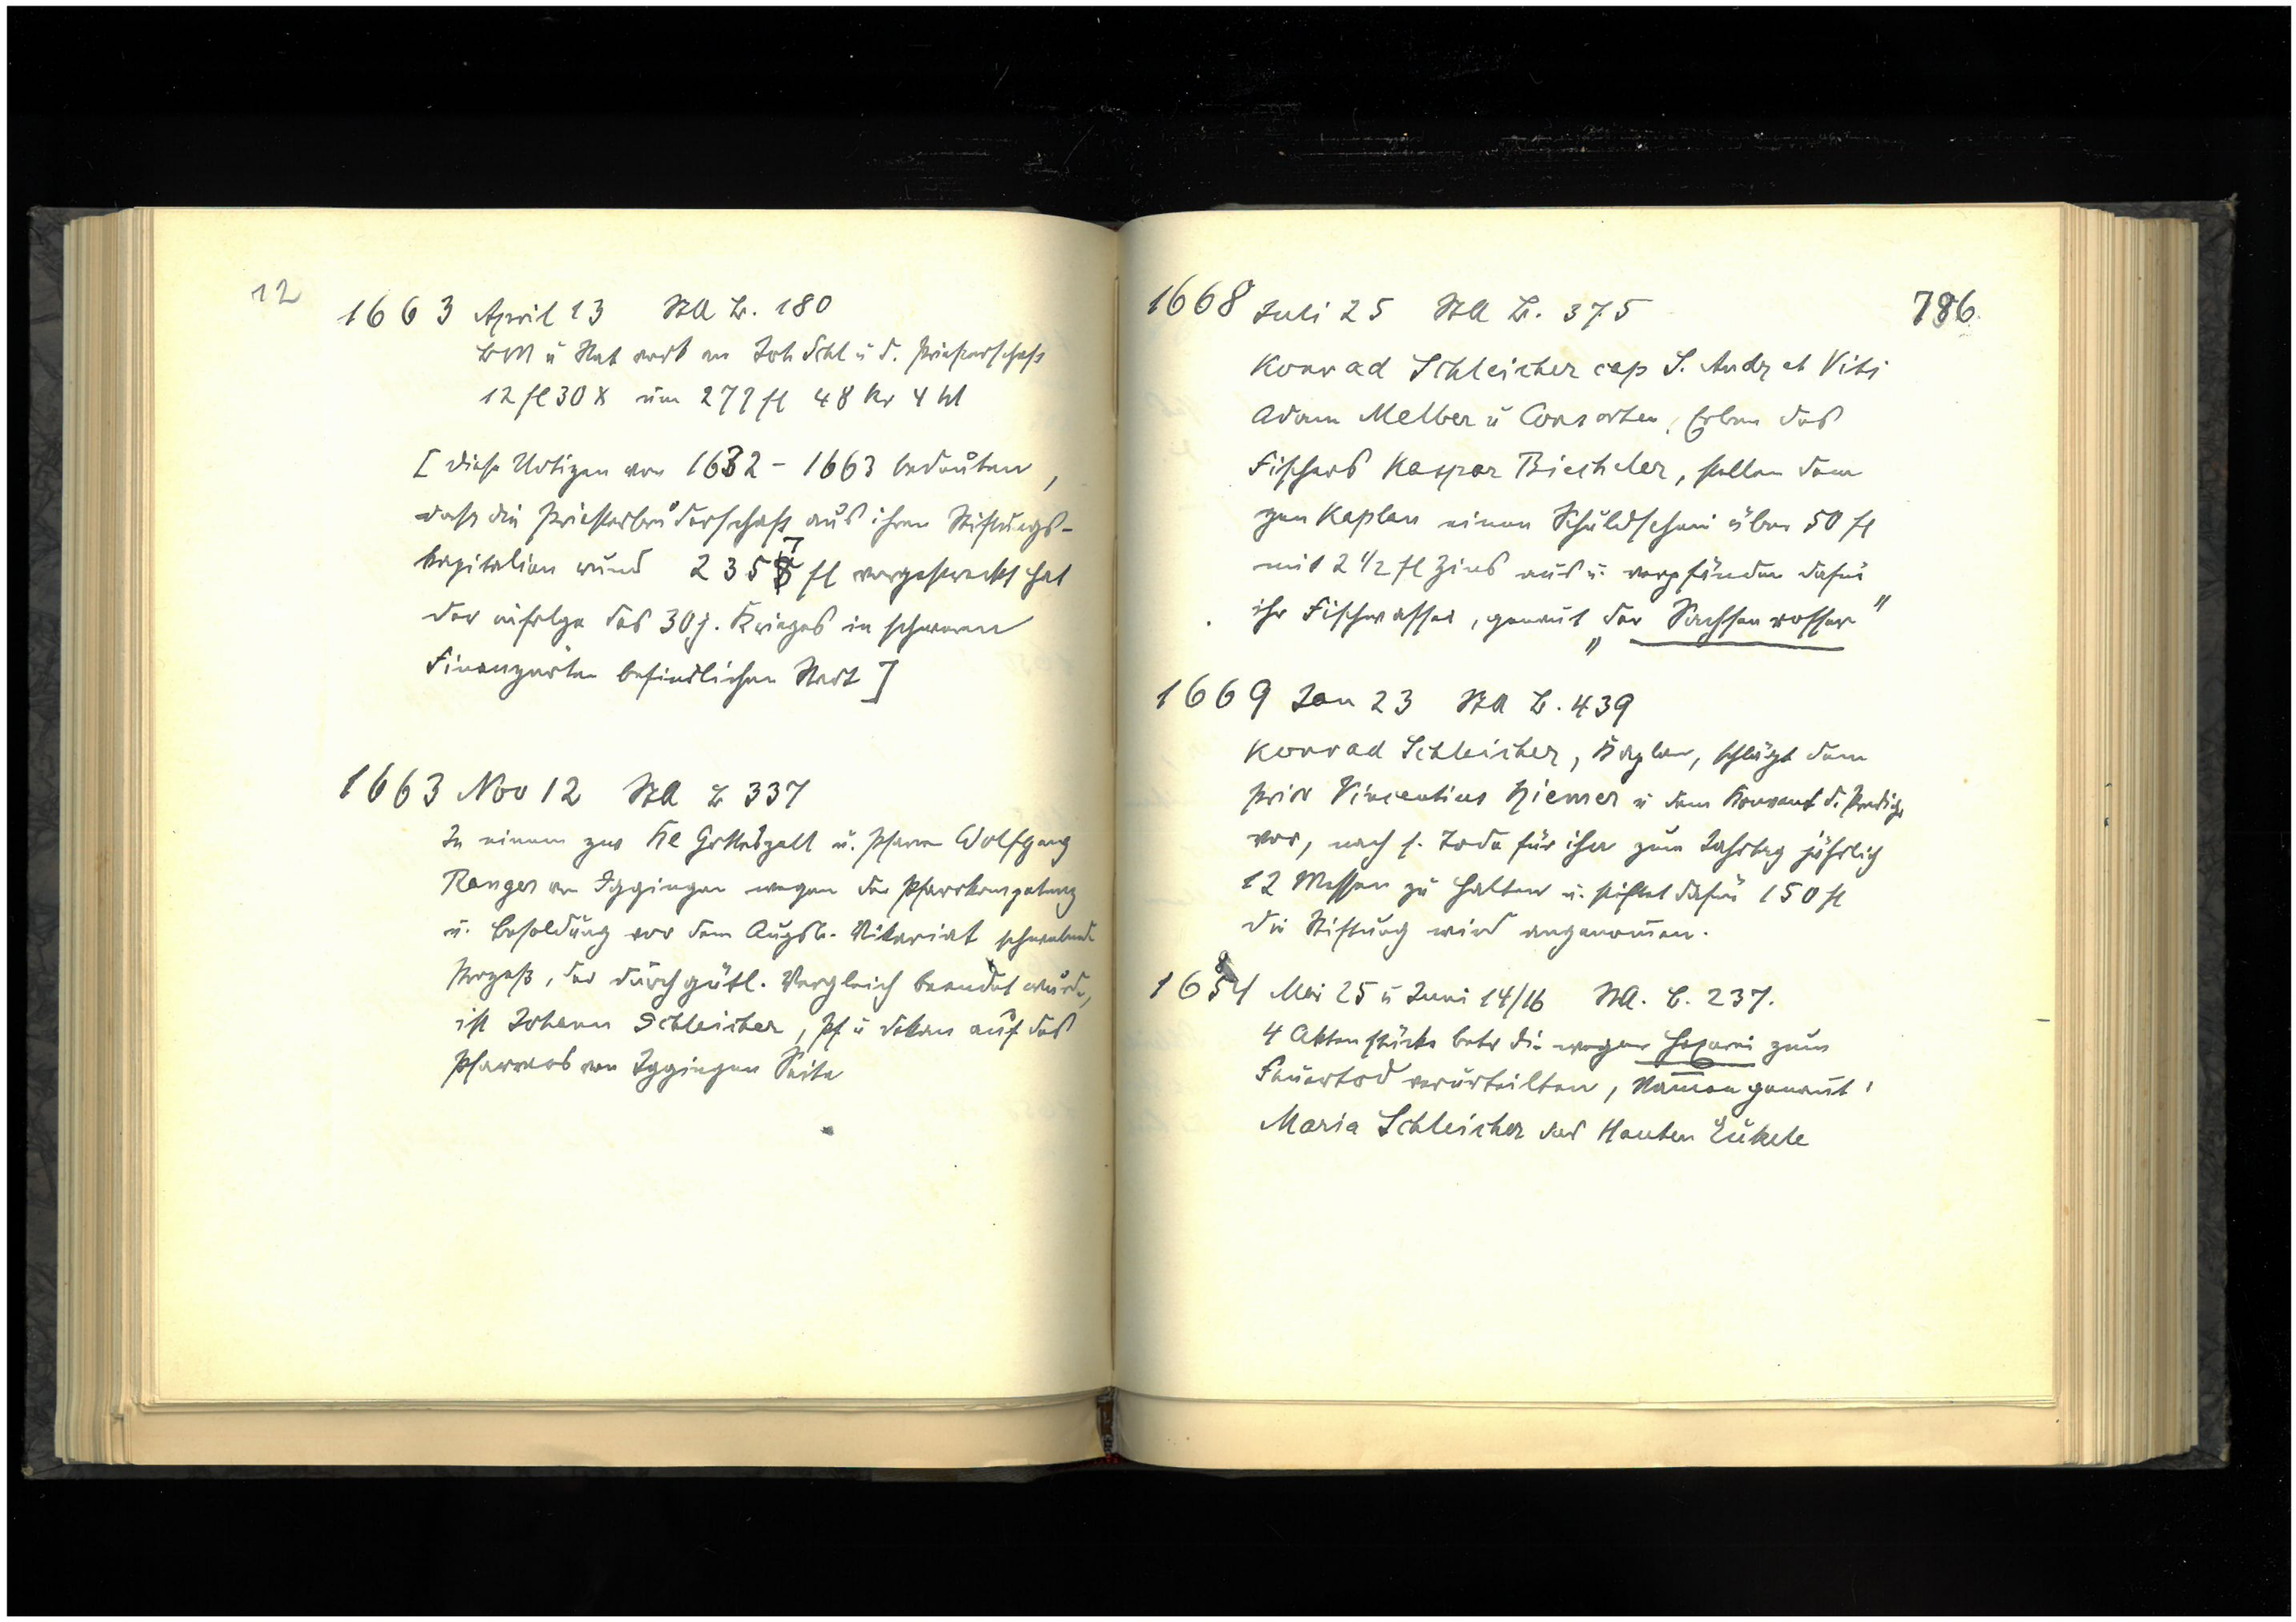 12
1663 April 13 StA Z. 180
BM u Rat verk an Joh Schl u d. Priesterschaft
12 fl 30 x um 277 fl 48 kr 4 hl
[ diese Notizen von 1632 - 1663 bedeuten,
dass die Priesterbruderschaft aus ihren Stiftungs-
kapitalien rund 2357 fl vorgestreckt hat
der infolge des 30 j. Krieges in schweren
Finanznöten befindlichen Stadt ]
1663 Nov 12 StA Z 337
In einem zw Kl Gotteszell u. Pfarrer Wolfgang
Ranger von Iggingen wegen der Pfarrkompetenz
u. Besoldung vor dem Augsb. Vikariat schwebende
Prozeß, der durch gütl. Vergleich beendet wurde,
ist Johann Schleicher, Pf u Dekan auf des
Pfarrers von Iggingen Seite
786.
1668 Juli 25 StA Z. 375
Konrad Schleicher cap S. Andr et Viti
Adam Melber u Consorten, Erben des
Fischers Kaspar Biecheler, stellen dem
gen Kaplan einen Schuldschein über 50 fl
mit 2 1/2 fl Zins aus u. verpfänden dafür
ihr Fischwasser, genannt „der Sachsenwasser"
1669 Jan 23 StA Z. 439
Konrad Schleicher, Kaplan, schlägt dem
Prior Vincentius Hiemer u dem Konvent d. Prediger
vor, nach s. Tode für ihn zum Jahrtag jährlich
12 Messen zu halten u. stiftet dafür 150 fl
die Stiftung wird angenommen.
1684 Mai 25 u Juni 14/16 StA. Z. 237.
4 Aktenstücke betr die wegen Hexerei zum
Feuertod verurteilten, Namen genannt:
Maria Schleicher des Hanten Enkele